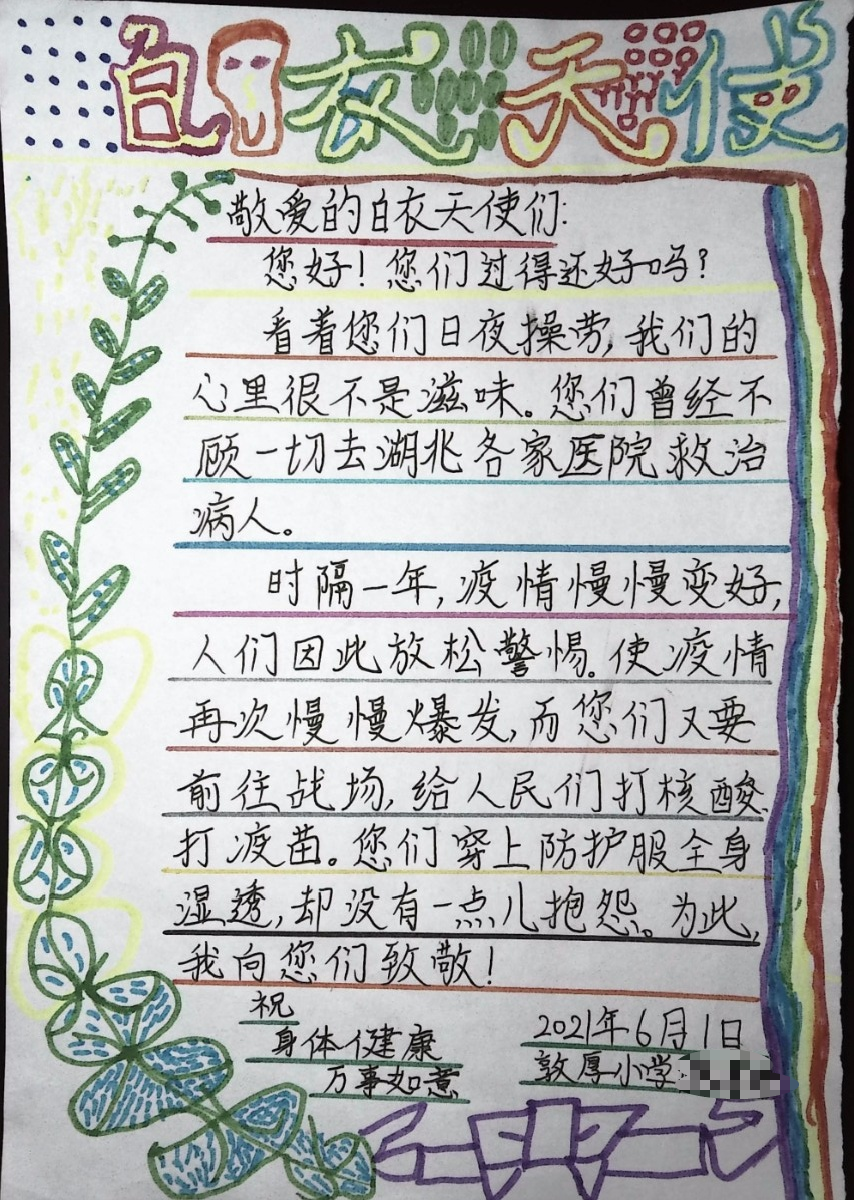 白衣天使
敬爱的白衣天使们:
您好!您们过得还好吗?
看着您们日夜操劳,我们的
心里很不是滋味。您们曾经不
顾一切去湖北各家医院救治
病人。
时隔一年,疫情慢慢变好,
人们因此放松警惕。使疫情
再次慢慢爆发,而您们又要
前往战场,给人民们打核酸、
打疫苗。您们穿上防护服全身
湿透,却没有一点儿抱怨。为此,
我向您们致敬!
祝
身体健康
万事如意
2021年6月1日
敦厚小学